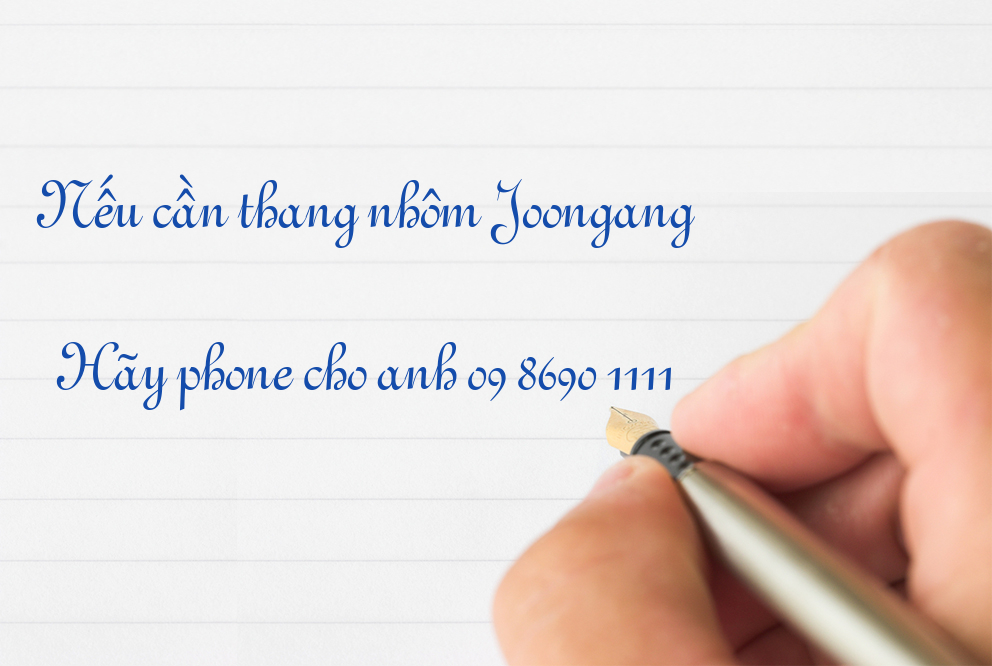 Nếu cần thang nhôm Joongang
Hãy phone cho anh 09 8690 1111